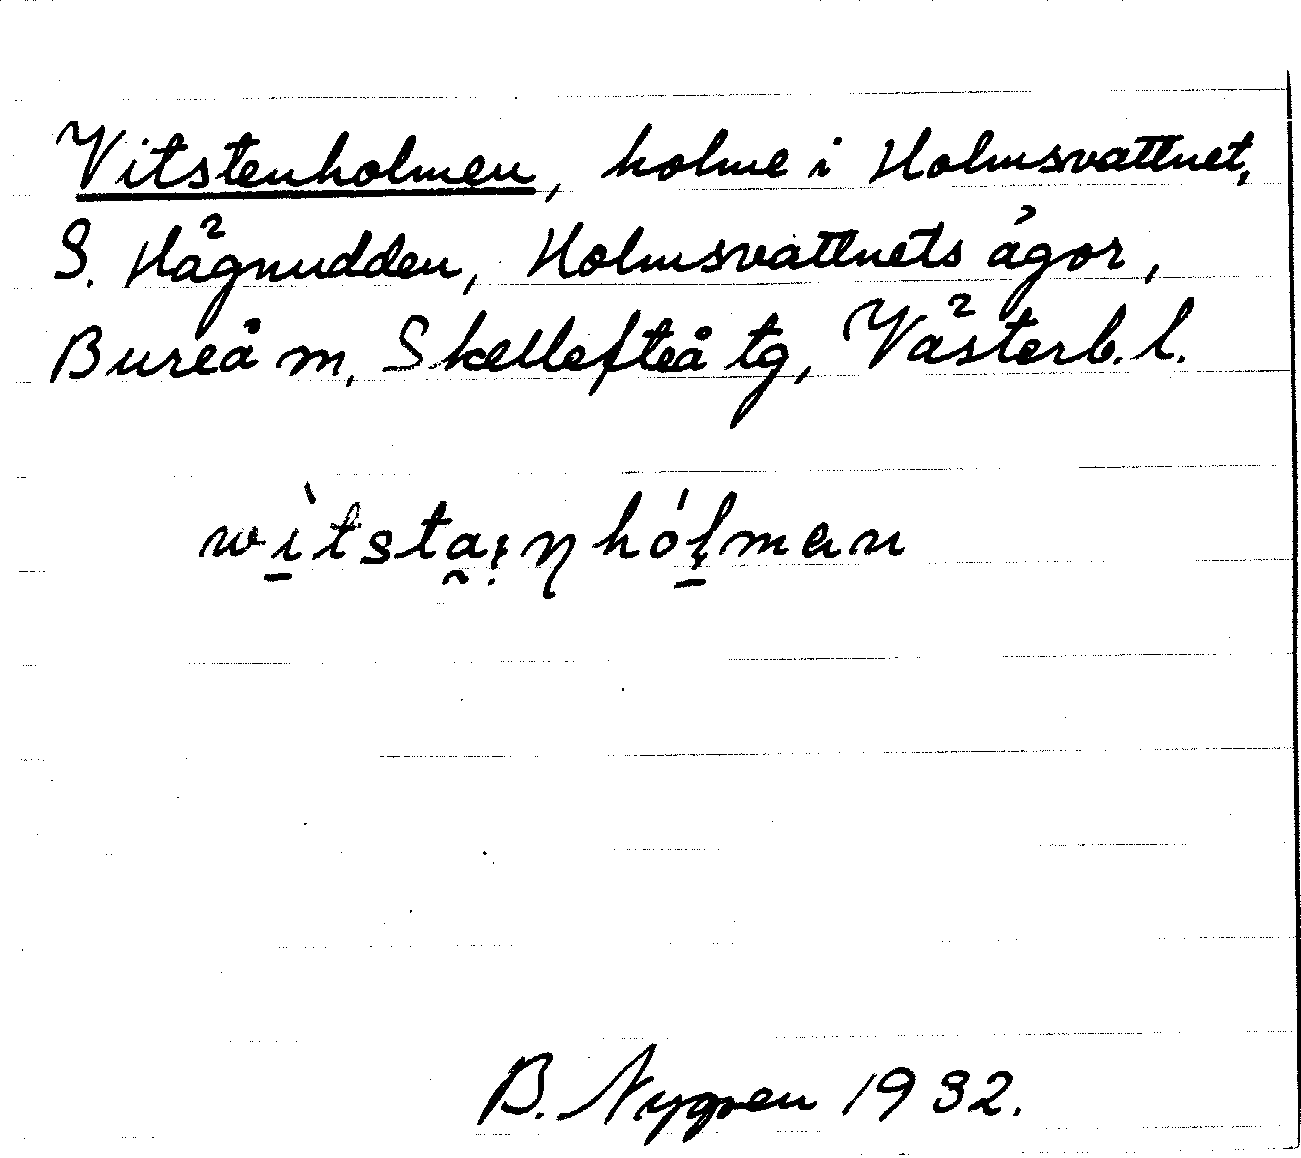 Vitstenholmen, holme i Holmsvattnet,
S. Hägnudden, Holmsvattnets ägor,
Bureå m, Skellefteå tg, Västerb. l.
wìtstai̯ŋhóɫmen
B. Nygren 1932.